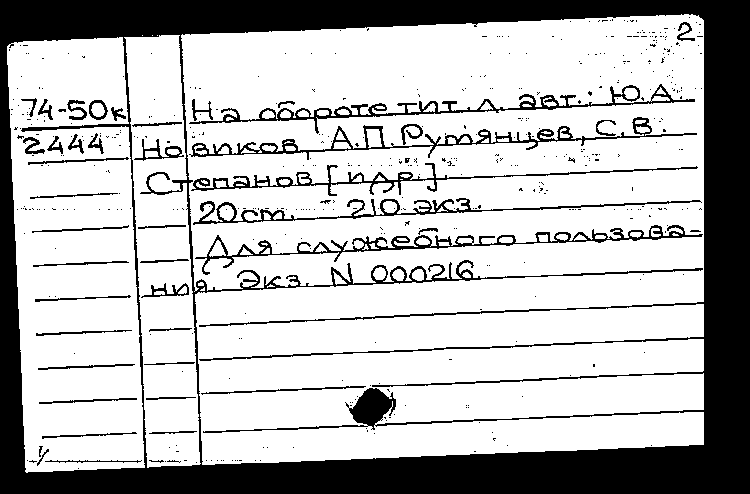 2
74-50к На обороте тит. л. авт.: Ю.А.
2444 Новиков, А.П. Румянцев, С.В.
Степанов [и др.].
20 cm. 210 экз.
Для служебного пользова-
ния. Экз. N 000216.